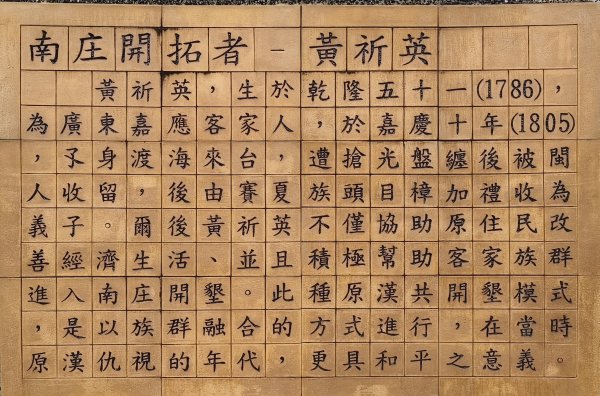 南庄開拓者 – 黃祈英
黃祈英，生於乾隆五十一(1786)，
為廣東嘉應客家人，於嘉慶十年(1805)
，孑身渡海來台，遭搶光盤纏後被閩
人收留，後由賽夏族頭目樟加禮收為
義子。爾後黃祈英不僅協助原住民改
善經濟生活、並且積極幫助客家族群
進入南庄開墾。此種原漢共開墾模式
，是以族群融合的方式進行，在當時
原漢仇視的年代，更具和平之意義。